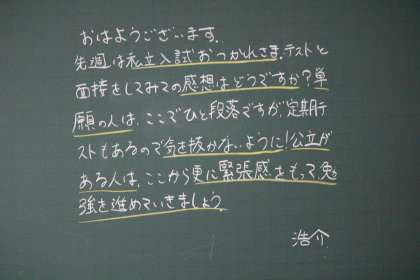 おはようございます。
先週は私立入試おつかれさま。テストと
面接をしてみての感想はどうですか？単
願の人は、ここでひと段落ですが、定期テ
ストもあるので気を抜かないように！公立が
ある人は、ここから更に緊張感をもって勉
強を進めていきましょう。
浩介